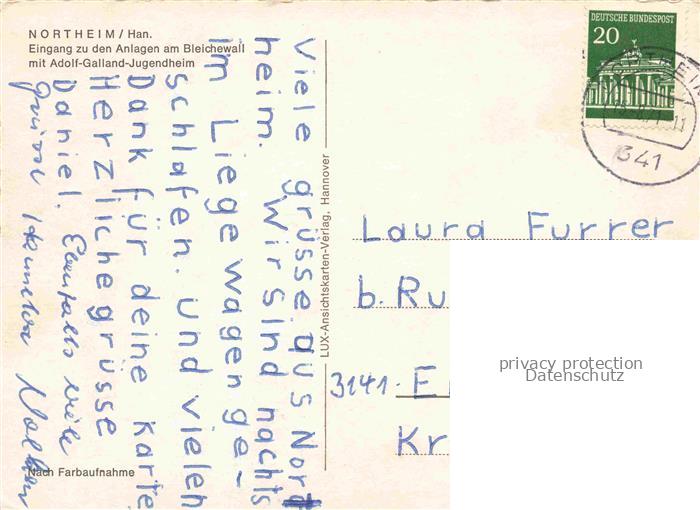 NORTHEIM / Han.
Eingang zu den Anlagen am Bleichewall
mit Adolf-Galland-Jugendheim
DEUTSCHE BUNDESPOST
20
341
Viele grüsse aus Nort
heim. Wir sind nachts
im Liegewagen ge-
schlafen. und vielen
Dank für deine Karte
Herzlichegrüsse
Daniel. Ebenfalls viele
LUX-Ansichtskarten-Verlag, Hannover
Laura Furrer
b. Ru
3141- E
Kr
privacy protection
Datenschutz
Nach Farbaufnahme